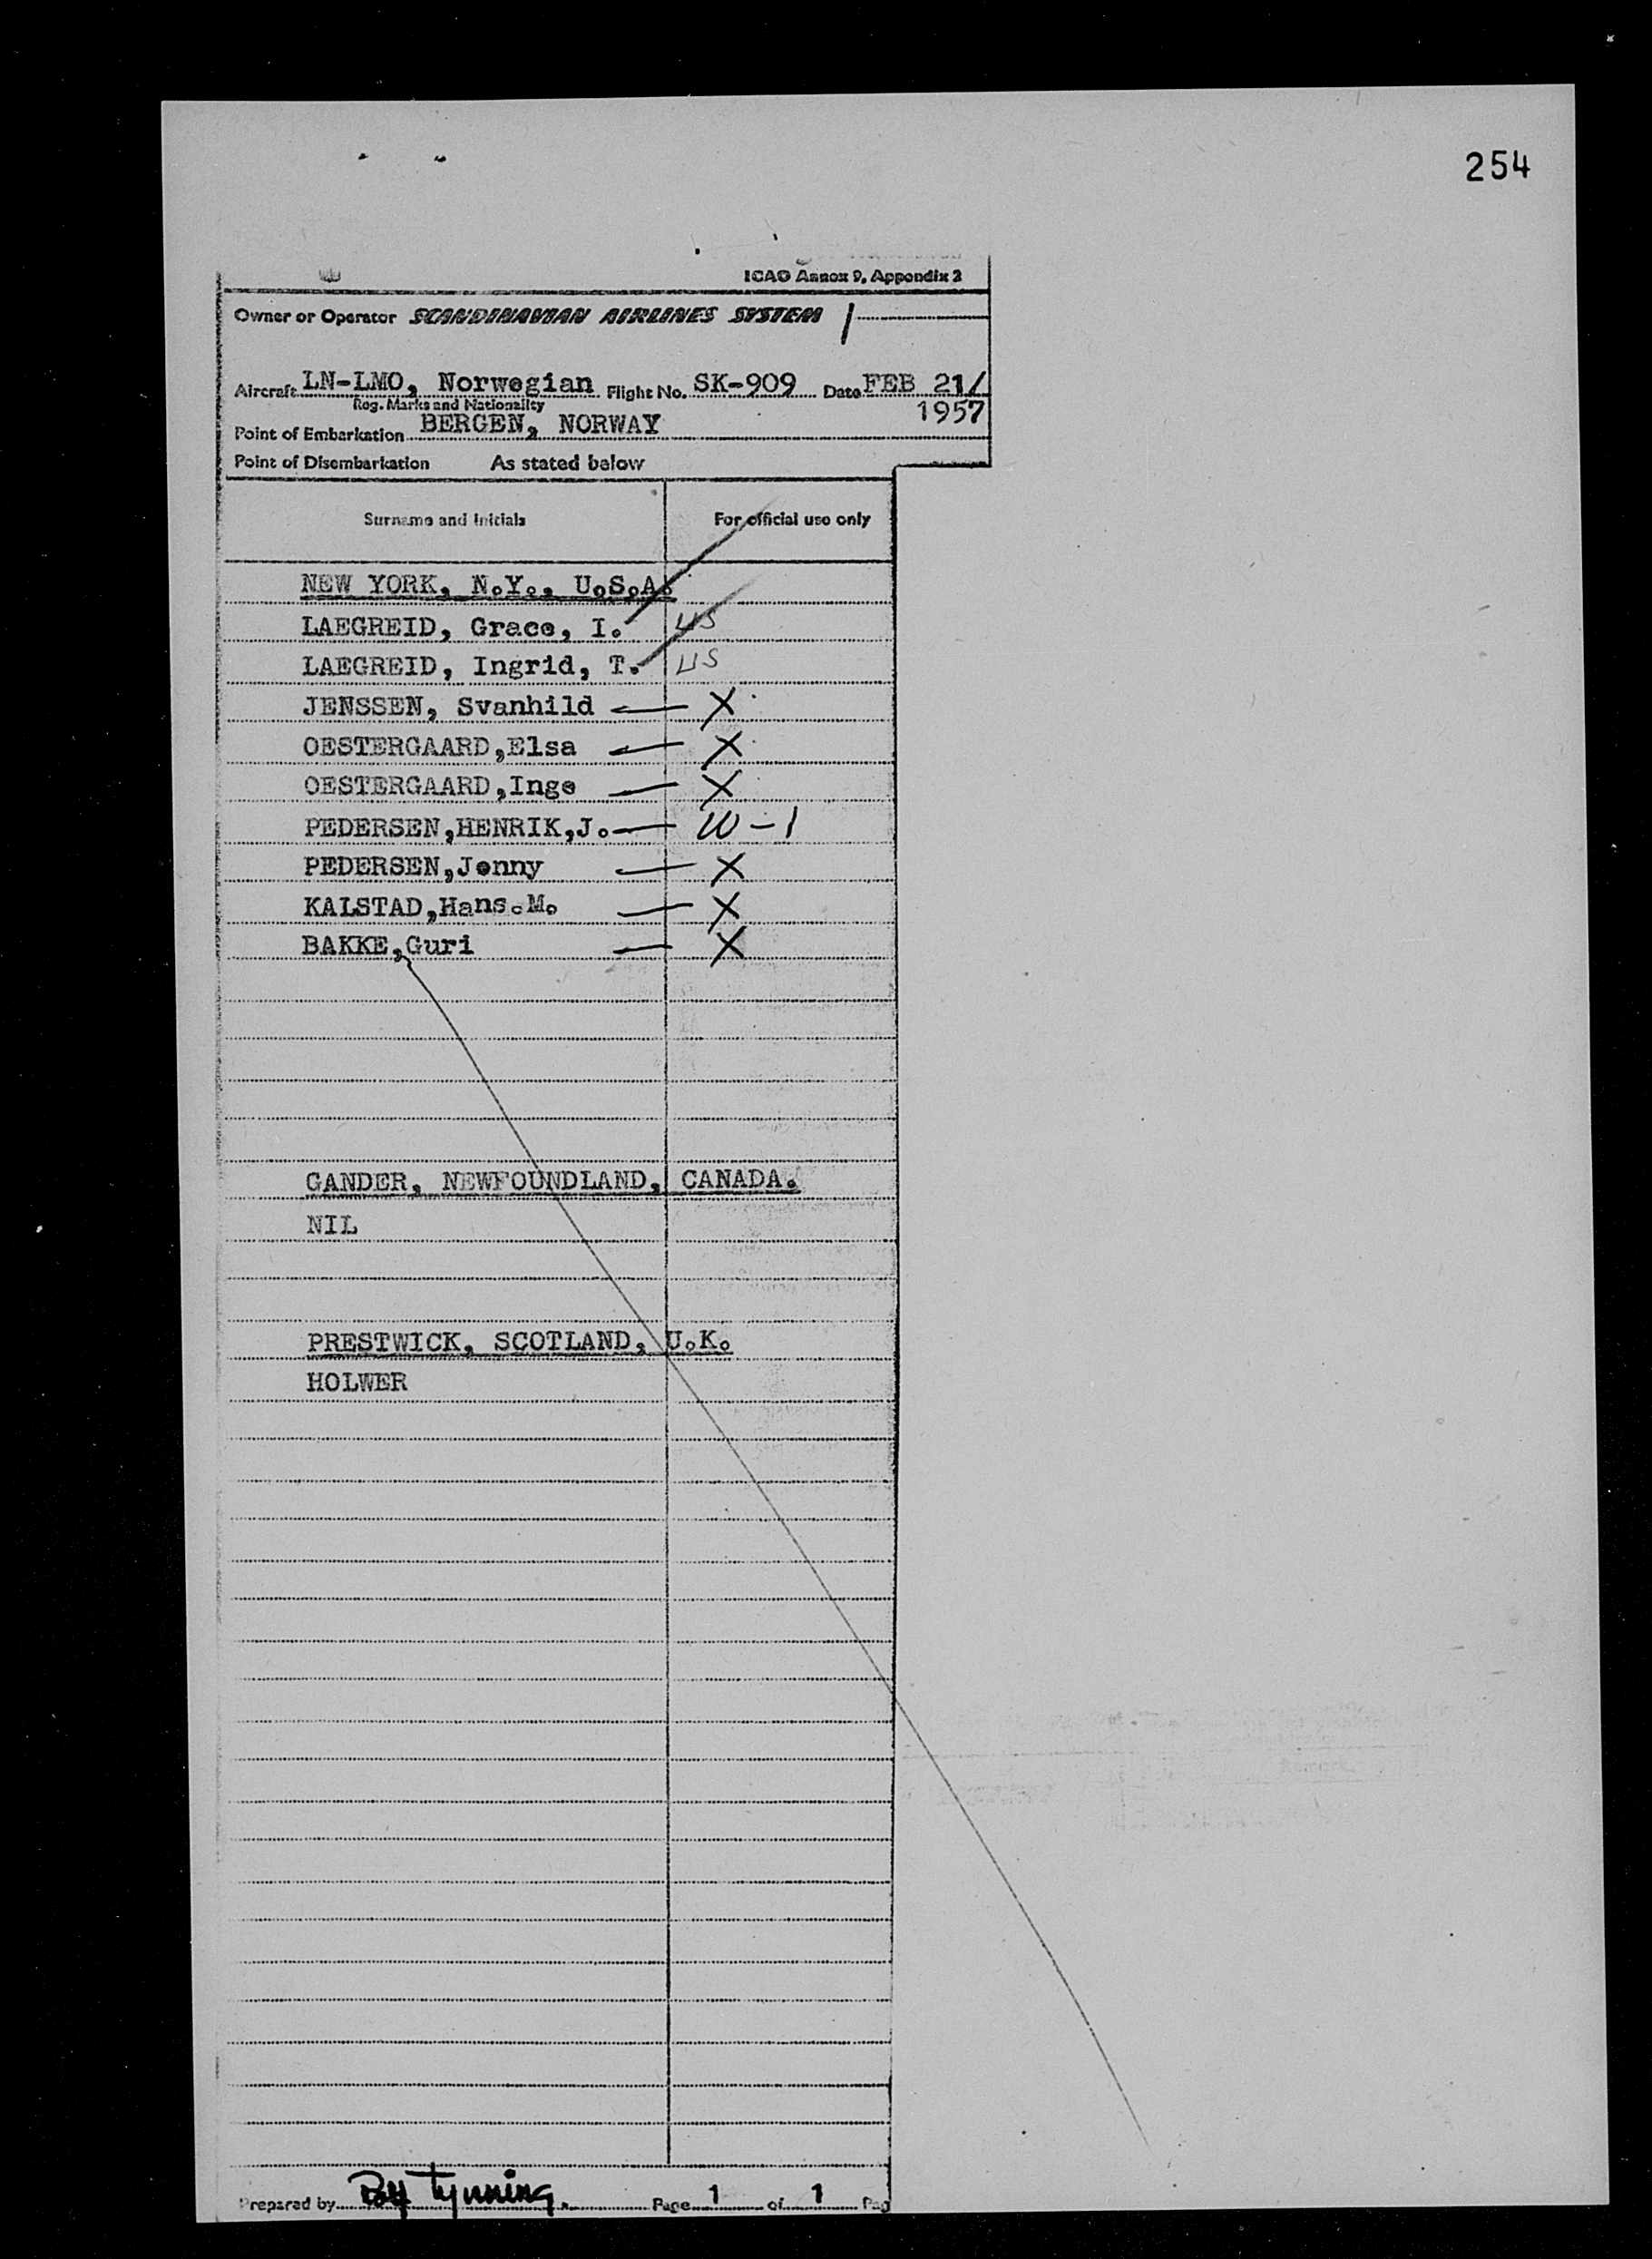 254
ICAO Annex 9, Appendix 2
Owner or Operator SCANDINAVIAN AIRLINES SYSTEM
Aircraft LN-LMO, Norwegian Flight No. SK-909 Date FEB 21/
Reg. Marks and Nationality 1957
Point of Embarkation BERGEN, NORWAY
Point of Disembarkation As stated below
Surname and Initials For official use only
NEW YORK, N.Y., U.S.A.
LAEGREID, Grace, I. US
LAEGREID, Ingrid, T. US
JENSSEN, Svanhild X
OESTERGAARD,Elsa X
OESTERGAARD,Inge X
PEDERSEN,HENRIK,J. W-1
PEDERSEN,Jenny X
KALSTAD,Hans.M. X
BAKKE,Guri X
GANDER, NEWFOUNDLAND, CANADA.
NIL
PRESTWICK, SCOTLAND, U.K.
HOLWER
Prepared by Tynning. Page 1 of 1